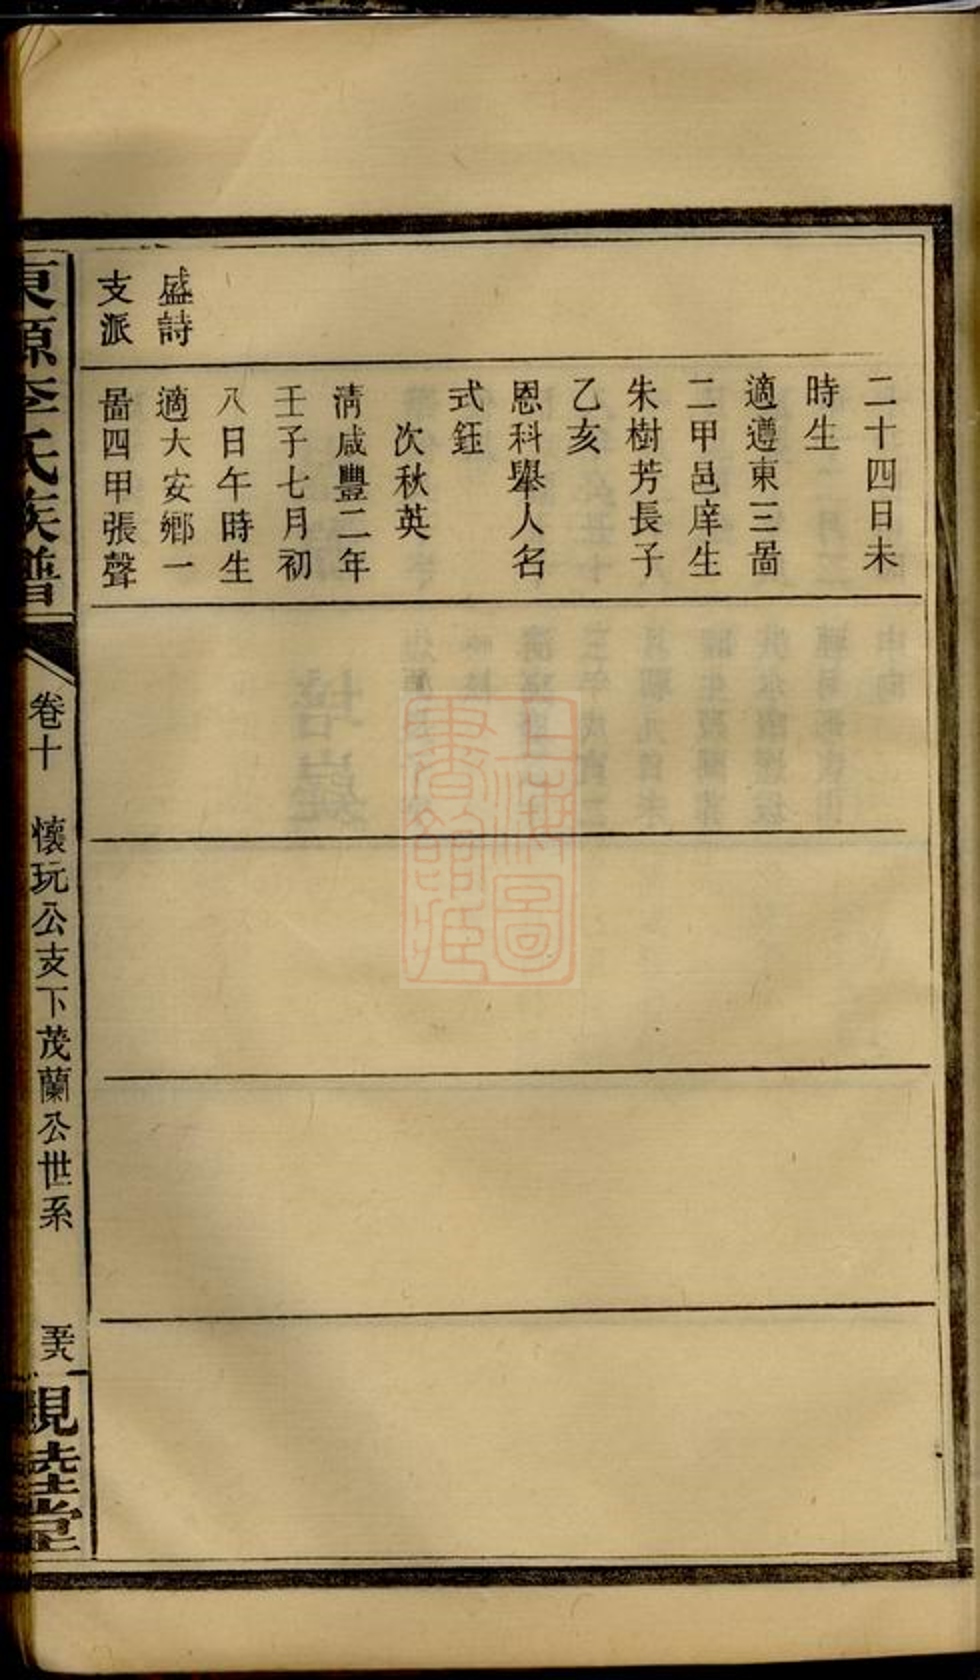 二十四日未
時生
適遵東三啚
二甲邑庠生
朱樹芳長子
乙亥
恩科舉人名
式鈺
次秋英
淸咸豐二年
壬子七月初
八日午時生
適大安鄉一
啚四甲張聲
盛詩
支派
東源李氏族譜
卷十
懷玩公支下茂蘭公世系
親睦堂
上海圖書館藏